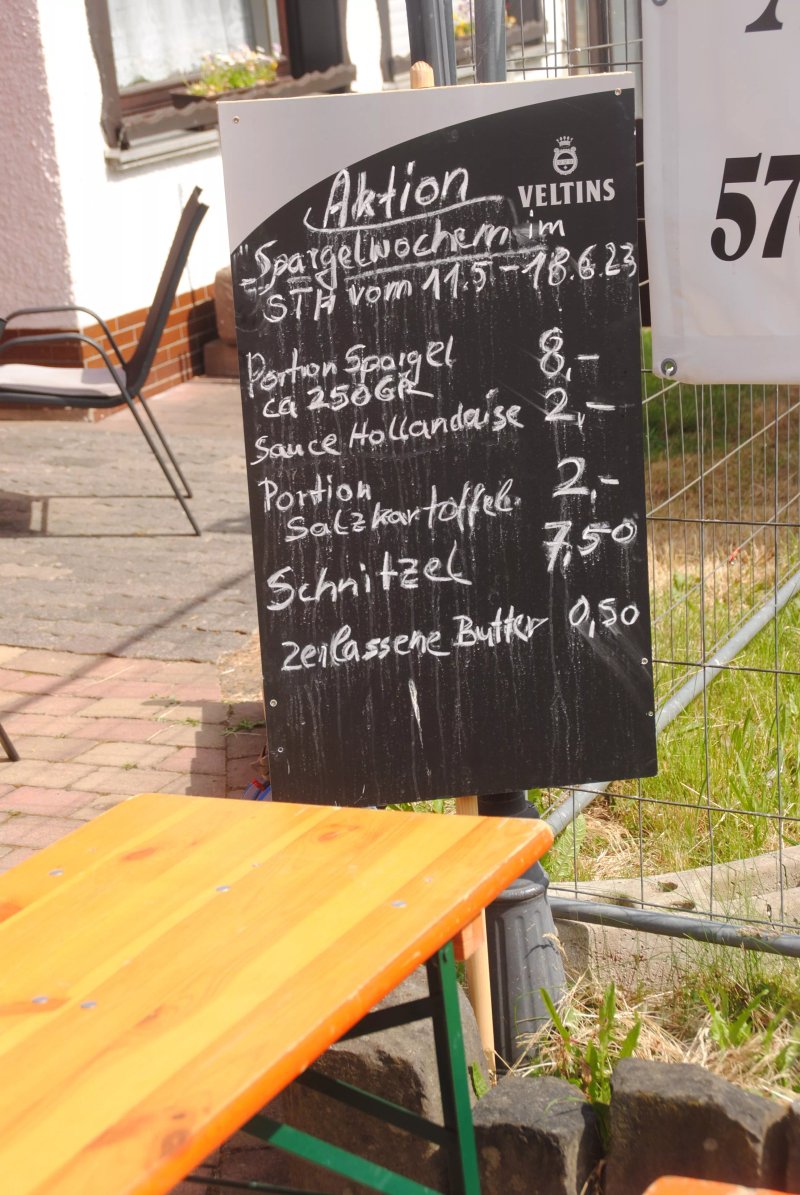 VELTINS
Aktion
"Spargelwochen im
STH vom 11.5 - 18.6.23
Portion Spargel 8,-
ca 250GR
Sauce Hollandaise 2,-
Portion 2,-
Salzkartoffel.
Schnitzel 7,50
Zerlassene Butter 0,50
57